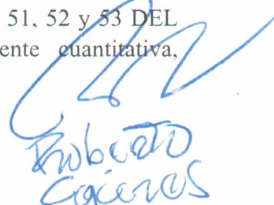 51, 52 y 53 DEL
ente cuantitativa,
Roberto
Cáceres